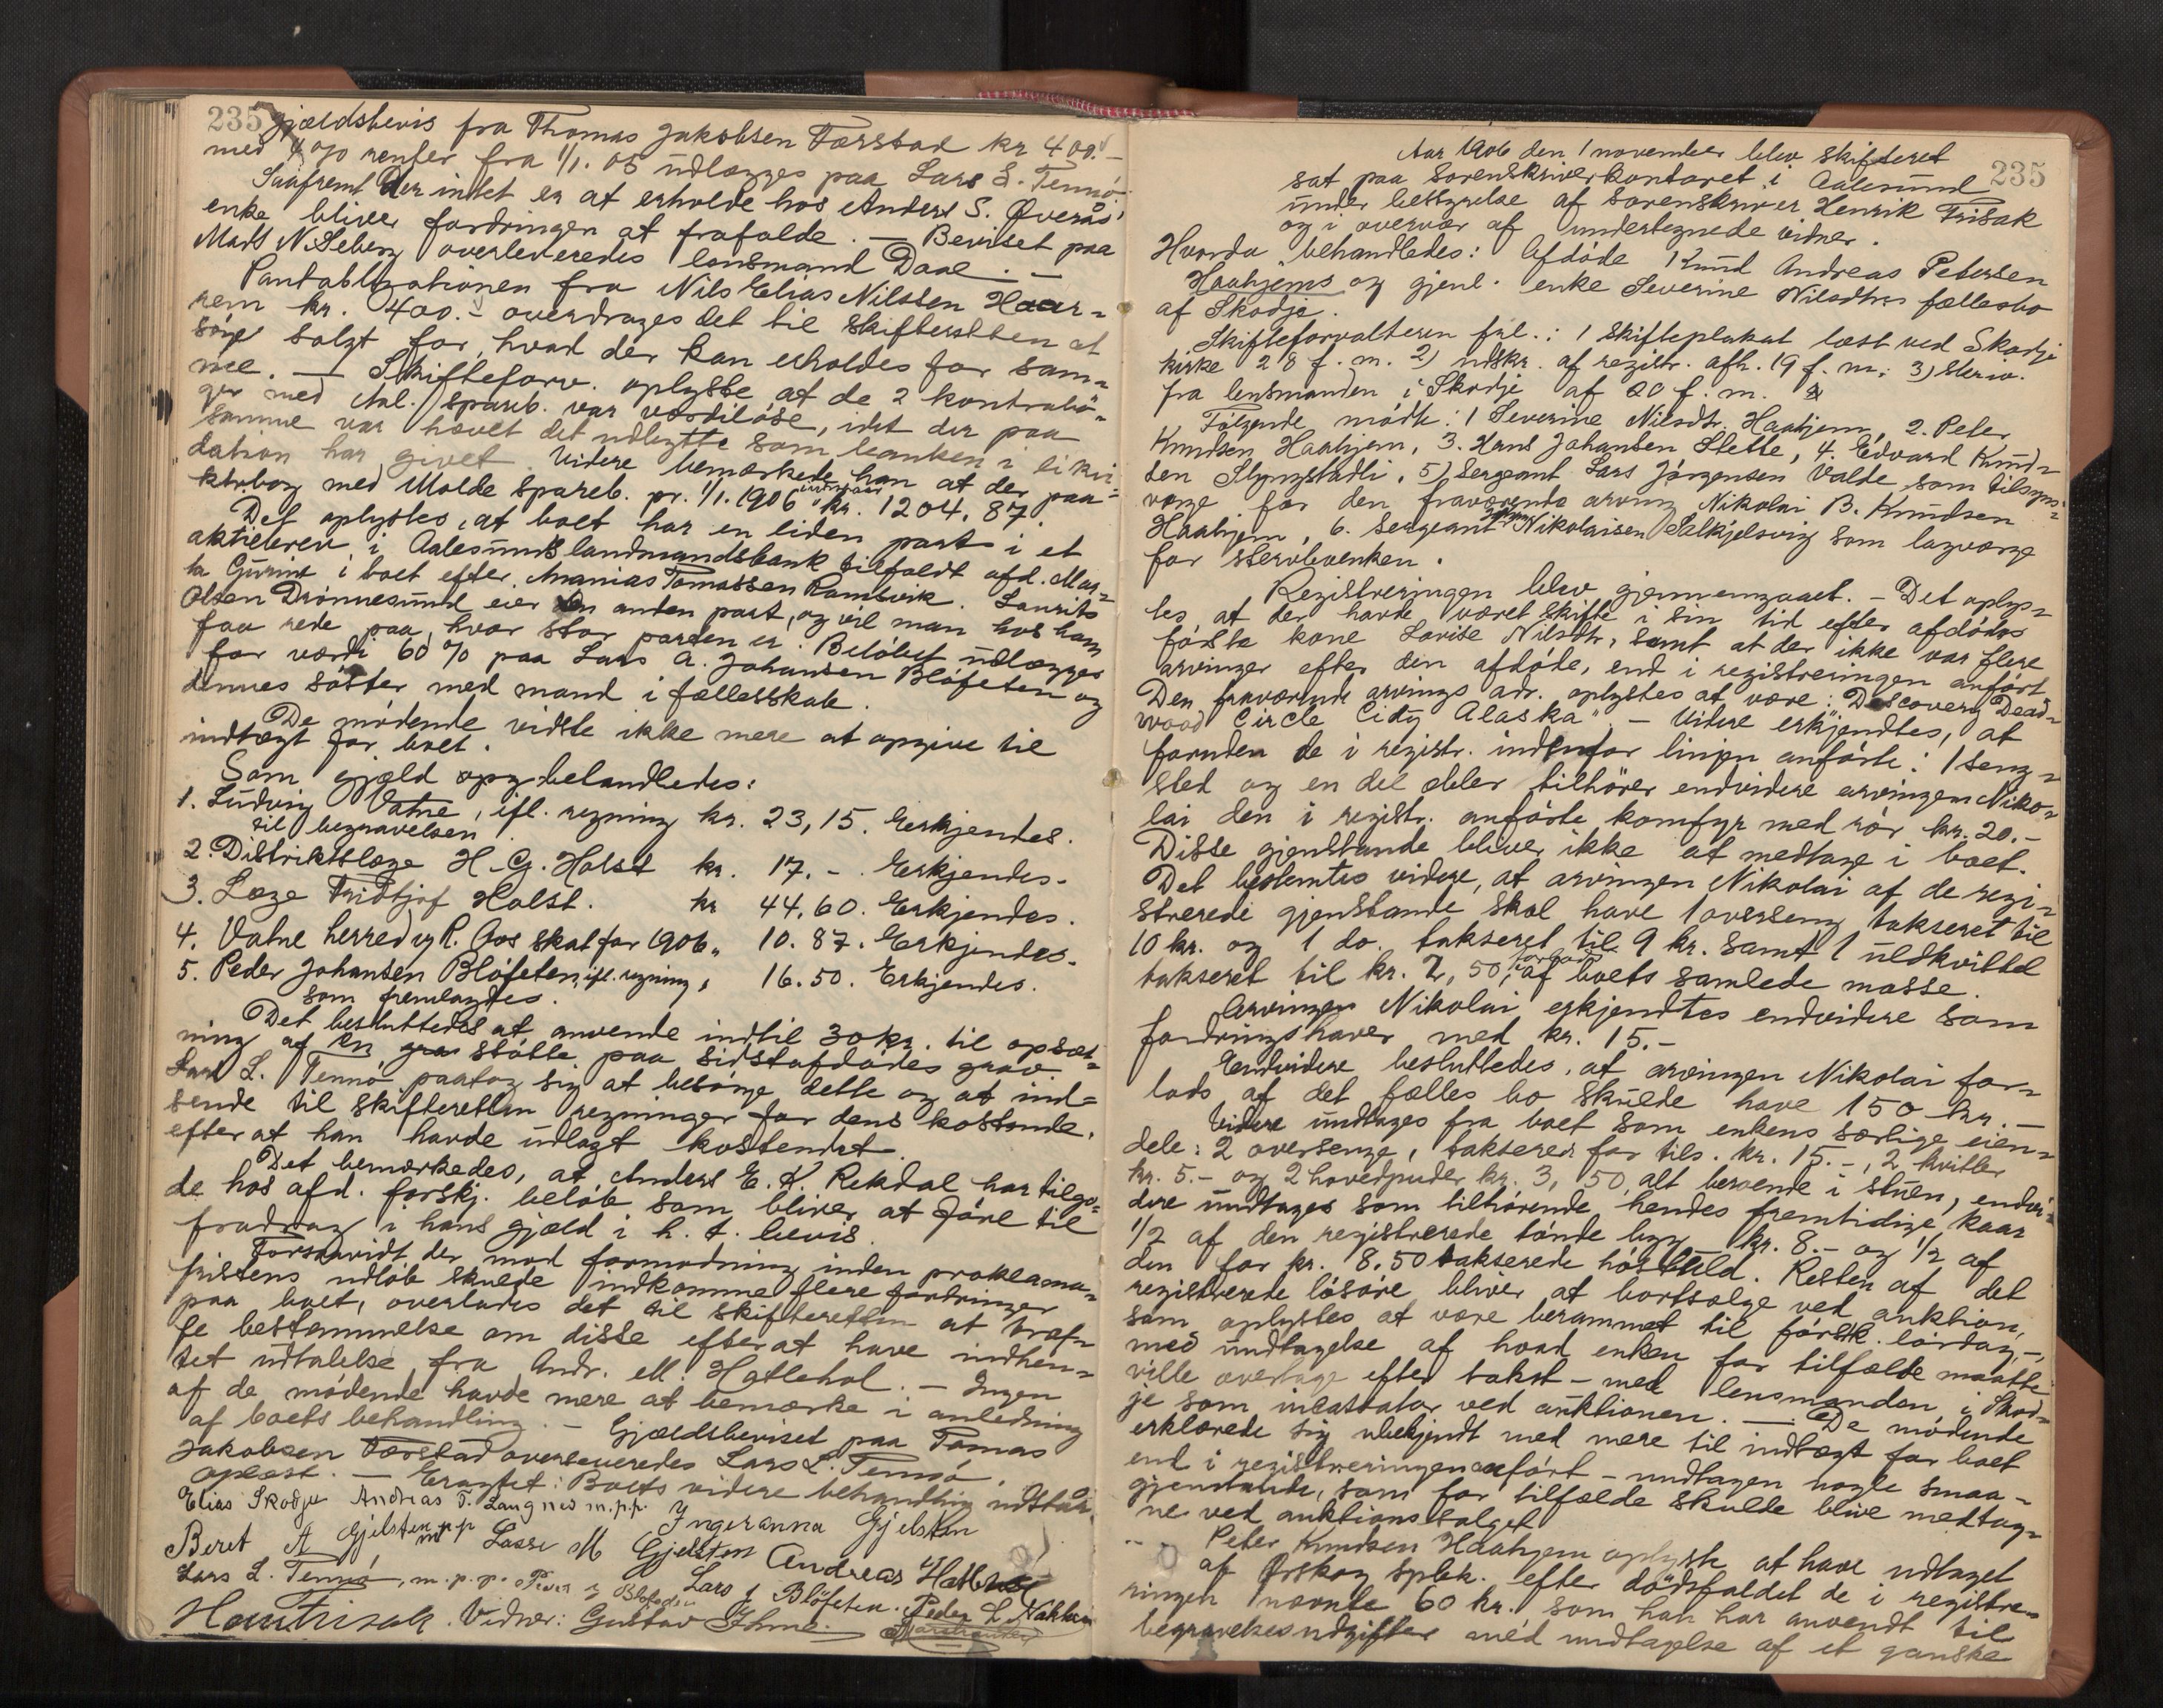 235
gjældsbevis fra Thomas Jakobsen Tærstad kr 400.-
med 4 % renter fra 1/1. 05 udlægges paa Lars L. Tennö.
Saafremt der intet er at erholde hos Anders S. Øveraas'
enke bliver fordringen at frafalde. — Beviset paa
Mads N. Seberg overleveredes lensmand Daae. —
Pantobligationen fra Nils Elias Nilssen Haar=
rem kr. 400.- overdrages det til skifteretten at
söge solgt for, hvad der kan erholdes for sam=
me. — Skifteforv. oplyste at de 2 kontrabö=
ger med Aal. spareb. var værdilöse, idet der paa
samme var hævet det udbytte som banken i likvi=
dation har givet. Videre bemærkede han at der paa
ktrbog med Molde spareb. pr. 1/1. 1906 indestaar kr. 1204.87.
Det oplystes, at boet har en liden part i et
aktiebrev i Aalesunds landmandsbank tilfaldt afd. Mar=
ta Gurine i boet efter Ananias Tomassen Ramsvik. Laurits
Olsen Drönnesund eier den anden part, og vil man hos ham
faa rede paa, hvor stor parten er. Belöbet udlægges
for værdi 60 % paa Lars A. Johansen Blöfeten og
dennes söster med mand i fællesskab.
De mödende vidste ikke mere at opgive til
indtægt for boet.
Som gjæld opg behandledes:
1. Ludvig Vatne, ifl. regning kr. 23,15. Erkjendes.
til begravelsen
2. Distriktslæge H. G. Holst kr. 17.- . Erkjendes.
3. Læge Fridtjof Holst. kr 44.60. Erkjendes.
4. Vatne herred og R. Aos skat for 1906 " 10.87. Erkjendes.
5. Peder Johansen Blöfeten, ifl. regning, " 16.50. Erkjendes.
som fremlagdes.
Det besluttedes at anvende indtil 30 kr. til opsæt=
ning af en grav stötte paa sidstafdödes grav.
Lars L. Tennö paatog sig at besörge dette og at ind=
sende til skifteretten regninger for dens kostende,
efter at han havde udlagt kostendet.
Det bemærkedes, at Anders E. K. Rekdal har tilgo=
de hos afd. forskj. belöb, som bliver at före til
fradrag i hans gjæld i h. t. bevis.
Forsaavidt der mod formodning inden proklama=
fristens udlöb skulde indkomme flere fordringer
paa boet, overlades det til skifteretten at træf=
fe bestemmelse om disse efterat have indhen=
tet udtalelse fra Andr. M. Hatlehol. — Ingen
af de mödende havde mere at bemærke i anledning
af boets behandling. — Gjældsbeviset paa Tomas
Jakobsen Tærstad overleveredes Lars L. Tennö.
Oplæst. — Eragtet: Boets videre behandling udstaar.
Elias Skodje Andreas T. Langnes m.p.p.
Beret A Gjelsten m.p.p. Lasse M Gjelsten Ingeranna Gjelsten
Andreas Hatlehol
Lars L. Tennö, m.p.p. Peder J Blöfeten Lars J Blöfeten. Peder L Nakken
Henr Frisak. Vidner: Gustav Ihme.
235
Aar 1906 den 1 november blev skifteret
sat paa sorenskriverkontoret i Aalesund
under bestyrelse af sorenskriver Henrik Frisak
og i overvær af undertegnede vidner.
Hvorda behandledes: Afdöde Knud Andreas Petersen
Haahjems og gjenl. enke Severine Nilsdtrs fællesbo
af Skodje.
Skifteforvalteren frl.: 1 skifteplakat læst ved Skodje
kirke 28 f. m. 2) udskr. af registr. afh. 19 f. m. 3) skriv.
fra lensmanden i Skodje af 20 f. m.
Fölgende mödte: 1 Severine Nilsdtr. Haahjem, 2. Peter
Knudsen Haahjem, 3. Hans Johansen Stette, 4. Edvard Knud=
sen Slyngstadli, 5) Sergeant Lars Jörgensen Valde som tilsyns=
verge for den fraværende arving Nikolai B. Knudsen
Haahjem, 6. Sergeant Nikolaisen Solkjelsvig som lagværge
for stervboenken.
Registreringen blev gjennemgaaet. — Det oplys=
tes, at der havde været skifte i sin tid efter afdödes
förste kone Lovise Nilsdtr, samt at der ikke var flere
arvinger efter den afdöde, end i registreringen anfört.
Den fraværende arvings adr. oplystes at være: "Discovery Dead=
wood Circle City Alaska". — Videre erkjendtes, at
foruden de i registr. indenfor linjen anförte: 1 seng=
sted og en del deler tilhörer endvidere arvingen Niko=
lai den i registr. anförte komfyr med rör kr. 20.-
Disse gjenstande bliver ikke at medtage i boet.
Det bestemtes videre, at arvingen Nikolai af de regi=
strerede gjenstande skal have 1 overseng takseret til
10 kr. og 1 do. takseret til 9 kr. samt 1 uldkvittel
takseret til kr. 2,50, forlods af boets samlede masse.
Arvingen Nikolai erkjendtes endvidere som
fordringshaver med kr. 15.-
Endvidere besluttedes, at arvingen Nikolai for=
lods af det fælles bo skulde have 150 kr. —
Videre undtages fra boet som enkens særlige eien=
dele: 2 oversenge, takseret for tils. kr. 15.-, 2 kvitler
kr. 5.- og 2 hovedpuder kr. 3,50, alt beroende i stuen, endvi=
dere undtages som tilhörende hendes fremtidige kaar
1/2 af den registrerede tönde byg kr. 8.- og 1/2 af
den for kr. 8.50 takserede höstuld. Resten af det
registrerede lösöre bliver at bortsælge ved auktion,
som oplystes at være berammet til förstk. lördag, —
med undtagelse af hvad enken for tilfælde maatte
ville overtage efter takst — med lensmanden i Skod=
je som inkassator ved auktionen. — De mödende
erklærede sig ubekjendt med mere til indtægt for boet
end i registreringen anfört — undtagen nogle smaa=
gjenstande, som for tilfælde skulde blive medtag=
ne ved auktionssalget.
Peter Knudsen Haahjem oplyste at have udtaget
af Ørskog spbk. efter dödsfaldet de i registre=
ringen nævnte 60 kr., som han har anvendt til
begravelsesudgifter med undtagelse af et ganske